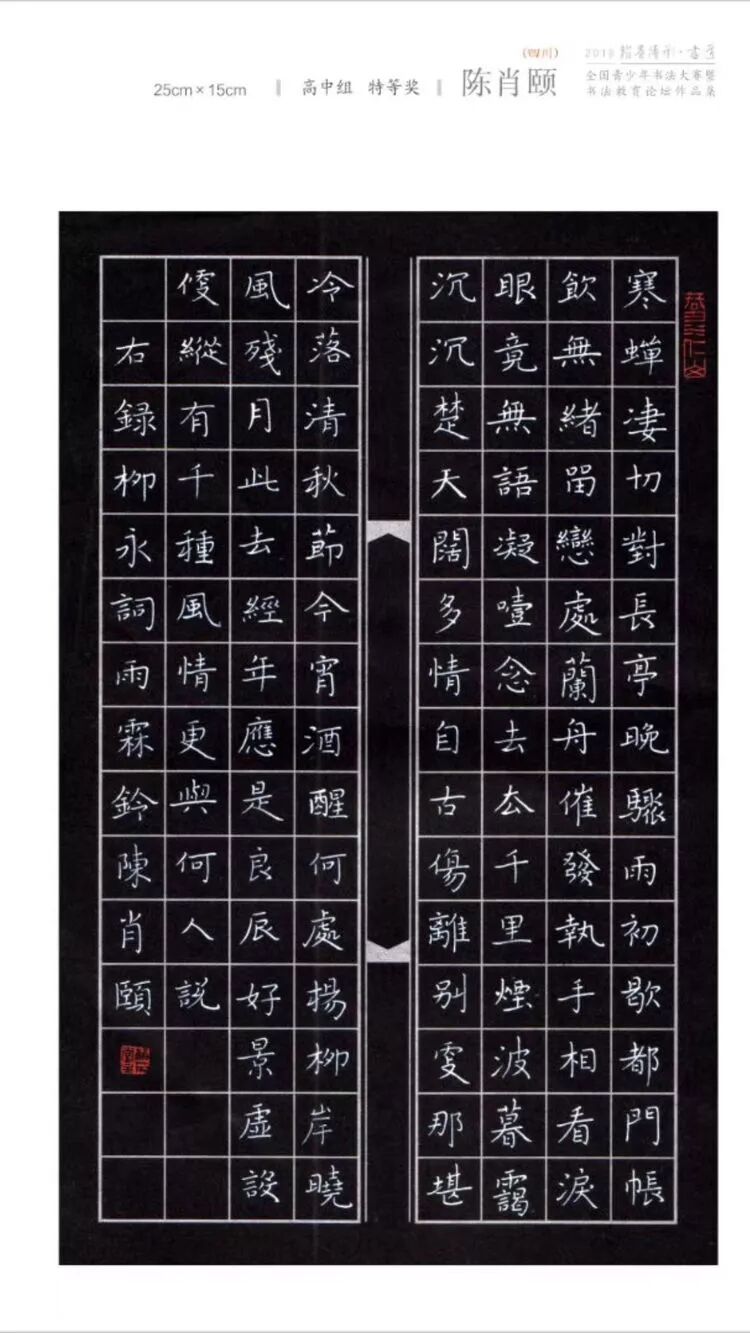 (四川)
全国青少年书法大赛暨
书法教育论坛作品集
25cm×15cm
高中组 特等奖
陈肖颐
寒蟬凄切對長亭晚驟雨初歇都門帳
飲無緒留戀處蘭舟催發執手相看淚
眼竟無語凝噎念去去千里煙波暮靄
沉沉楚天闊多情自古傷離別更那堪
冷落清秋節今宵酒醒何處楊柳岸曉
風殘月此去經年應是良辰好景虛設
便縱有千種風情更與何人說
右錄柳永詞雨霖鈴陳肖頤